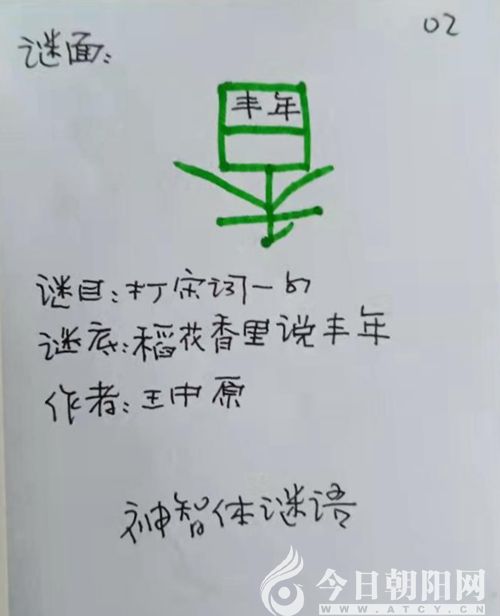 02
谜面:
丰年
谜目:打宋词一句
谜底:稻花香里说丰年
作者:王中原
神智体谜语
今日朝阳网
WWW.ATCY.CN